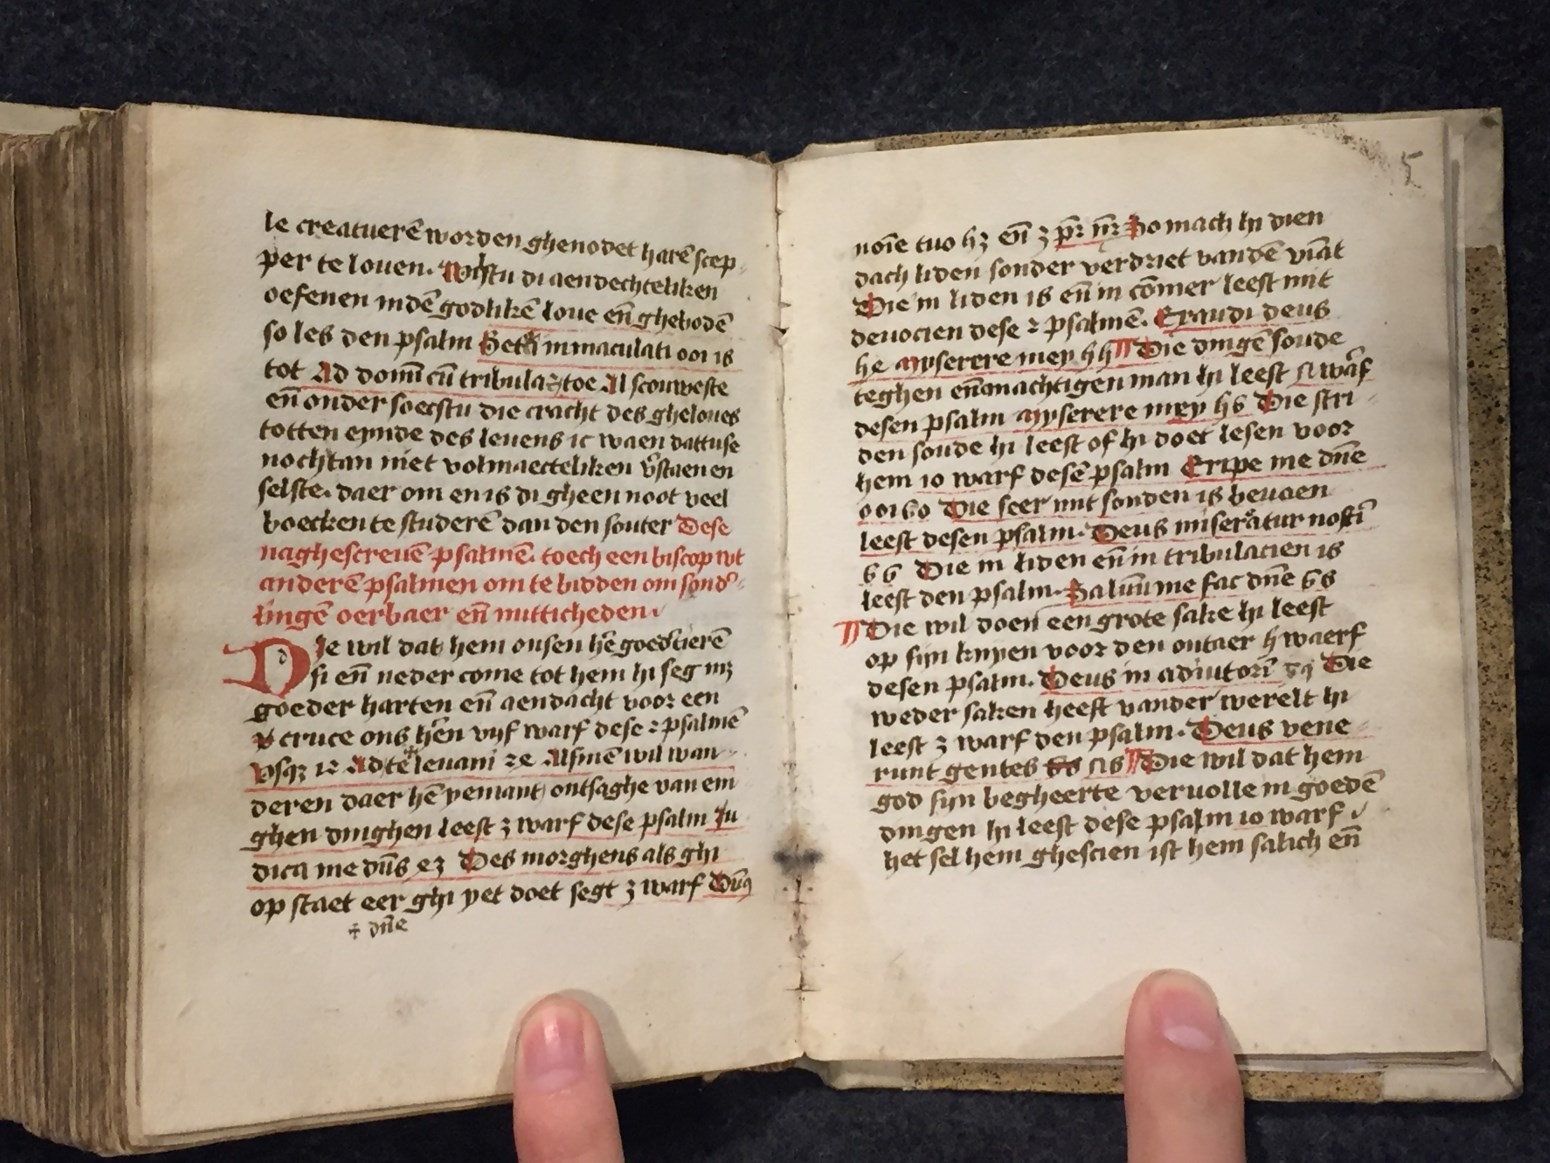 le creatuerē worden ghenodet harē scep
per te louen. Wilstu di aendechteliken
oefenen indē godlikē loue eñ ghebodē
so les den psalm Beti immaculati 001 18
tot Ad domī cū tribula2 toe Al scouweste
eñ onder soecstu die cracht des gheloues
totten eynde des leuens ic waen dattuse
nochtan niet volmaecteliken v̄staen en
selste. daer om en is di gheen noot veel
boecken te studerē dan den souter Dese
naghescreuē psalmē. toech een biscop wt
anderē psalmen om te bidden om sond'
lingē oerbaer eñ nutticheden
Die wil dat hem onsen hē goedtierē
si eñ neder come tot hem hi seg mz
goeder harten eñ aendacht voor een
cruce ons hēn vyf warf dese 2 psalmē
Vsqz 12 Ad te leuaui 2e Alsmē wil wan
deren daer hē yemant ontsaghe van em
ghen dinghen leest 3 warf dese psalm Iu
dica me dūs 43 Des morghens als ghi
op staet eer ghi yet doet segt 3 warf Dūs
+ dñe
5
noīe tuo 43 eñ 3 pr nr So mach hi dien
dach liden sonder verdriet vandē viāt
Die in liden is eñ in cōmer leest mit
deuocien dese 2 psalmē. Exaudi deus
he Myserere mey 44 Die dingē soude
teghen eñ machtigen man hi leest warf
desen psalm Myserere mey 46 Die stri
den soude hi leest of hi doet lesen voor
hem 10 warf desē psalm Eripe me dñe
Die seer mit sonden is beuaen
leest desen psalm. Deus miseratur nostī
66 Die in liden eñ in tribulacien is
leest den psalm. Saluū me fac dñe 68
Die wil doen een grote sake hi leest
op sijn knyen voor den outaer 4 waerf
desen psalm. Deus in adiutorī 69 Die
weder saken heeft vander werelt hi
leest 3 warf den psalm. Deus vene
runt gentes Die wil dat hem
god sijn begheerte veruolle in goedē
dingen hi leest dese psalm 10 warf
het sel hem ghescien ist hem salich eñ